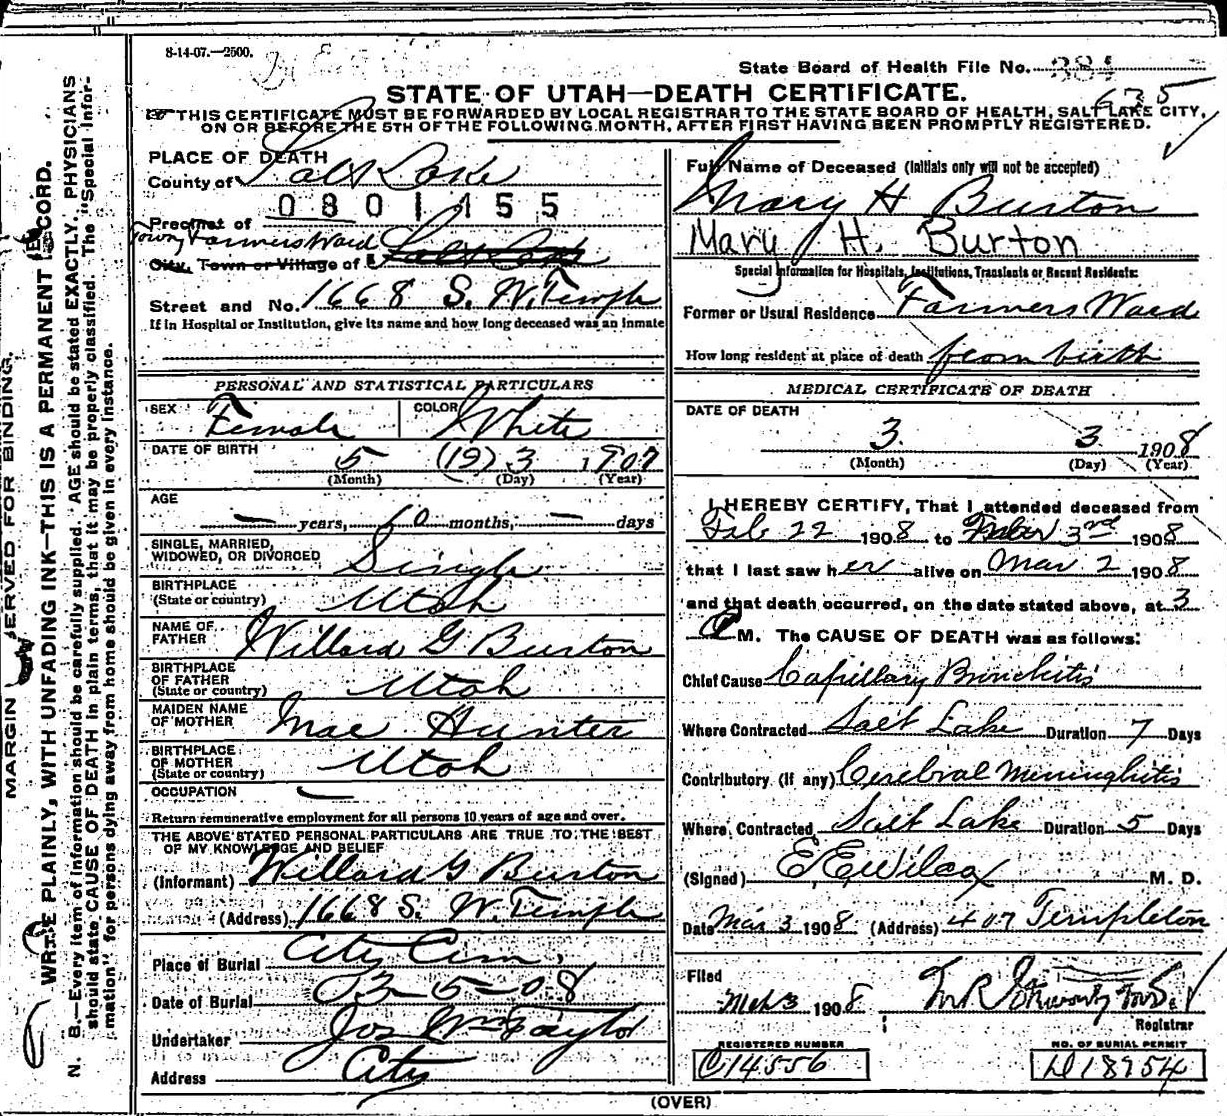 8-14-07.—2500.
State Board of Health File No. 384
635
STATE OF UTAH—DEATH CERTIFICATE.
☞ THIS CERTIFICATE MUST BE FORWARDED BY LOCAL REGISTRAR TO THE STATE BOARD OF HEALTH, SALT LAKE CITY,
ON OR BEFORE THE 5TH OF THE FOLLOWING MONTH, AFTER FIRST HAVING BEEN PROMPTLY REGISTERED.
MARGIN RESERVED FOR BINDING.
WRITE PLAINLY, WITH UNFADING INK—THIS IS A PERMANENT RECORD.
N. B.—Every item of information should be carefully supplied. AGE should be stated EXACTLY. PHYSICIANS
should state CAUSE OF DEATH in plain terms, that it may be properly classified. The "Special Infor-
mation" for persons dying away from home should be given in every instance.
PLACE OF DEATH
County of Salt Lake
0801455
Precinct of
Town Farmers Ward
City, Town or Village of Salt Lake
Street and No. 1668 S. W. Temple
If in Hospital or Institution, give its name and how long deceased was an inmate
PERSONAL AND STATISTICAL PARTICULARS
SEX Female COLOR White
DATE OF BIRTH
5 (19) 3 1907
(Month) (Day) (Year)
AGE
— years, 10 months, — days
SINGLE, MARRIED,
WIDOWED, OR DIVORCED Single
BIRTHPLACE
(State or country) Utah
NAME OF
FATHER Willard G Burton
BIRTHPLACE
OF FATHER
(State or country) Utah
MAIDEN NAME
OF MOTHER Mae Hunter
BIRTHPLACE
OF MOTHER
(State or country) Utah
OCCUPATION —
Return remunerative employment for all persons 10 years of age and over.
THE ABOVE STATED PERSONAL PARTICULARS ARE TRUE TO THE BEST
OF MY KNOWLEDGE AND BELIEF
(Informant) Willard G Burton
(Address) 1668 S. W. Temple
Place of Burial City Cem.
Date of Burial 03-5-08
Undertaker Jos Wm Taylor
Address City
Full Name of Deceased (Initials only will not be accepted)
Mary H Burton
Mary H. Burton
Special Information for Hospitals, Institutions, Transients or Recent Residents:
Former or Usual Residence Farmers Ward
How long resident at place of death from birth
MEDICAL CERTIFICATE OF DEATH
DATE OF DEATH
3 3 1908
(Month) (Day) (Year)
I HEREBY CERTIFY, That I attended deceased from
Feb 22 1908 to 3rd 1908
that I last saw her alive on Mar 2 1908
and that death occurred, on the date stated above, at 3
M. The CAUSE OF DEATH was as follows:
Chief Cause Capillary Bronchitis
Where Contracted Salt Lake Duration 7 Days
Contributory (if any) Cerebral Meninghitis
Where Contracted Salt Lake Duration 5 Days
(Signed) E. E. Wilcox M. D.
Date Mar 3 1908 (Address) 407 Templeton
Filed
Mch 3 1908
Registrar
REGISTERED NUMBER
C14556
NO. OF BURIAL PERMIT
D18954
(OVER)